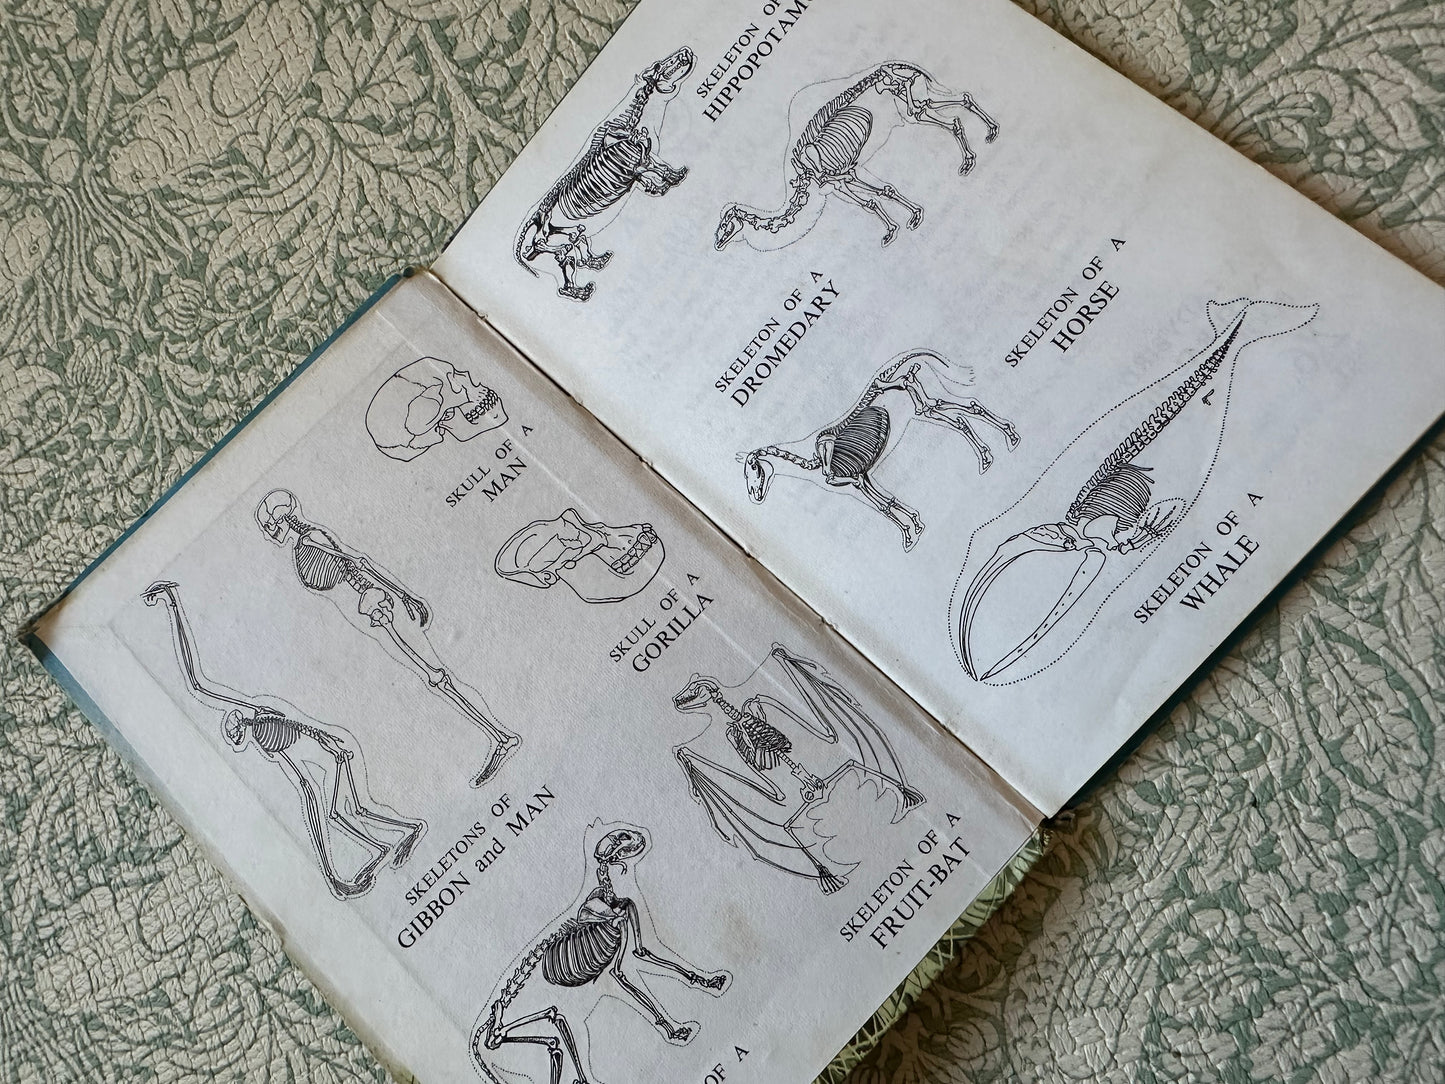 SKULL OF A
MAN
SKULL OF A
GORILLA
SKELETONS OF
GIBBON and MAN
SKELETON OF A
FRUIT-BAT
OF A
SKELETON OF
HIPPOPOTAM
SKELETON OF A
DROMEDARY
SKELETON OF A
HORSE
SKELETON OF A
WHALE